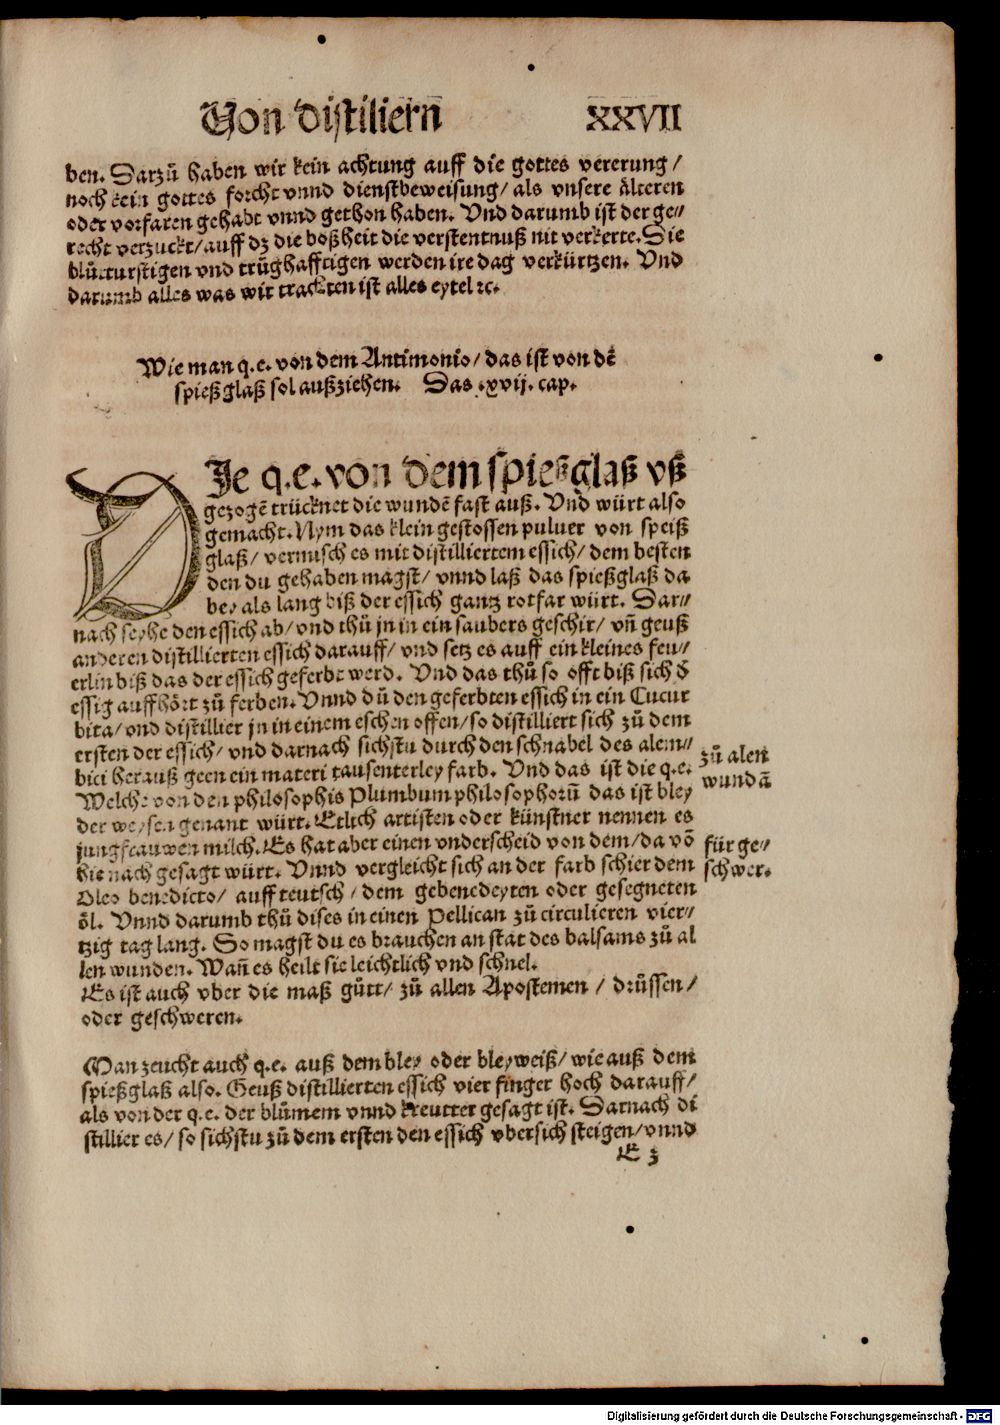 Von distiliern̄ XXVII
ben. Darzů haben wir kein achtung auff die gottes vererung/
noch kein gottes forcht vnnd dienstbeweisung/ als vnsere älteren
oder vorfaren gehabt vnnd gethon haben. Vnd darumb ist der ge⸗
recht verzuckt/ auff dz die boßheit die verstentnuß nit verkerte. Die
blůtturstigen vnd trůghafftigen werden ire dag verkürtzen. Vnd
darumb alles was wir trachten ist alles eytel ꝛc.
Wie man q.e. von dem Antimonio/ das ist von dē
spießglaß sol außziehen. Das .xvij. cap.
DJe q.e. von dem spießglaß vß
gezogē trücknet die wundē fast auß. Vnd würt also
gemacht. Nym das klein gestossen puluer von speiß
glaß/ vermisch es mit distilliertem essich/ dem besten
den du gehaben magst/ vnnd laß das spießglaß da
bey als lang biß der essich gantz rotfar würt. Dar⸗
nach seyhe den essich ab/ vnd thů jn in ein saubers geschir/ vn̄ geuß
anderen distillierten essich darauff/ vnd setz es auff ein kleines feu⸗
erlin biß das der essich geferbt werd. Vnd das thů so offt biß sich d̄
essig auffhört zů ferben. Vnnd dů den geferbten essich in ein Cucur
bita/ vnd distillier jn in einem eschen offen/ so distilliert sich zů dem
ersten der essich/ vnd darnach sichstu durch den schnabel des alem⸗
bici herauß geen ein materi tausenterley farb. Vnd das ist die q.e.
Welche von den philosophis Plumbum philosophorū das ist bley
der weysen genant würt. Etlich artisten oder künstner nennen es
jungfrauwen milch. Es hat aber einen vnderscheid von dem/ da vō
hie nach gesagt würt. Vnnd vergleicht sich an der farb schier dem
Oleo benedicto/ auff teutsch/ dem gebenedeyten oder gesegneten
öl. Vnnd darumb thů dises in einen Pellican zů circulieren vier⸗
tzig tag lang. So magst du es brauchen an stat des balsams zů al
len wunden. Wan̄ es heilt sie leichtlich vnd schnel.
Es ist auch vber die maß gůtt/ zů allen Apostemen/ drüssen/
oder geschweren.
zů alen
wundā
für ge⸗
schwer.
Man zeucht auch q.e. auß dem bley oder bleyweiß/ wie auß dem
spießglaß also. Geuß distillierten essich vier finger hoch darauff/
als von der q.e. der blůmem vnnd kreutter gesagt ist. Darnach di
stillier es/ so sichstu zů dem ersten den essich vbersich steigen/ vnnd
E 3
Digitalisierung gefördert durch die Deutsche Forschungsgemeinschaft - DFG